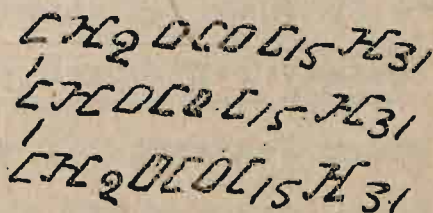 CH2OCOC15H31
CHOCOC15H31
CH2OCOC15H31